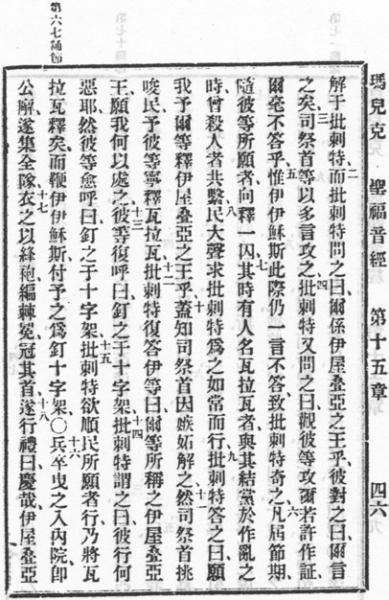 瑪兒克 聖福音經 第十五章 四六
解于批剌特二而批剌特問之曰爾係伊屋疊亞之王乎彼對之曰爾言
之矣三司祭首等以多言攻之四批剌特又問之曰觀彼等攻爾若許作証
爾毫不答乎五惟伊伊穌斯此際仍一言不答致批剌特奇之六凡屆節期
隨彼等所願者向釋一囚七其時有人名瓦拉瓦者與其結黨於作亂之
時曾殺人者共繫八民大聲求批剌特為之如常而行九批剌特答之曰願
我予爾等釋伊屋疊亞之王乎十蓋知司祭首因嫉妬解之十一然司祭首挑
唆民予彼等寧釋瓦拉瓦十二批剌特復答伊等曰爾等所稱之伊屋疊亞
王願我何以處之十三彼等復呼曰釘之于十字架十四批剌特謂之曰彼行何
惡耶然彼等愈呼曰釘之于十字架十五批剌特欲順民所願者行乃將瓦
拉瓦釋矣而鞭伊伊穌斯付予之為釘十字架○十六兵卒曳之入內院即
公廨遂集全隊十七衣之以絳袍編棘冕冠其首十八遂行禮曰慶哉伊屋疊亞
第六七誦